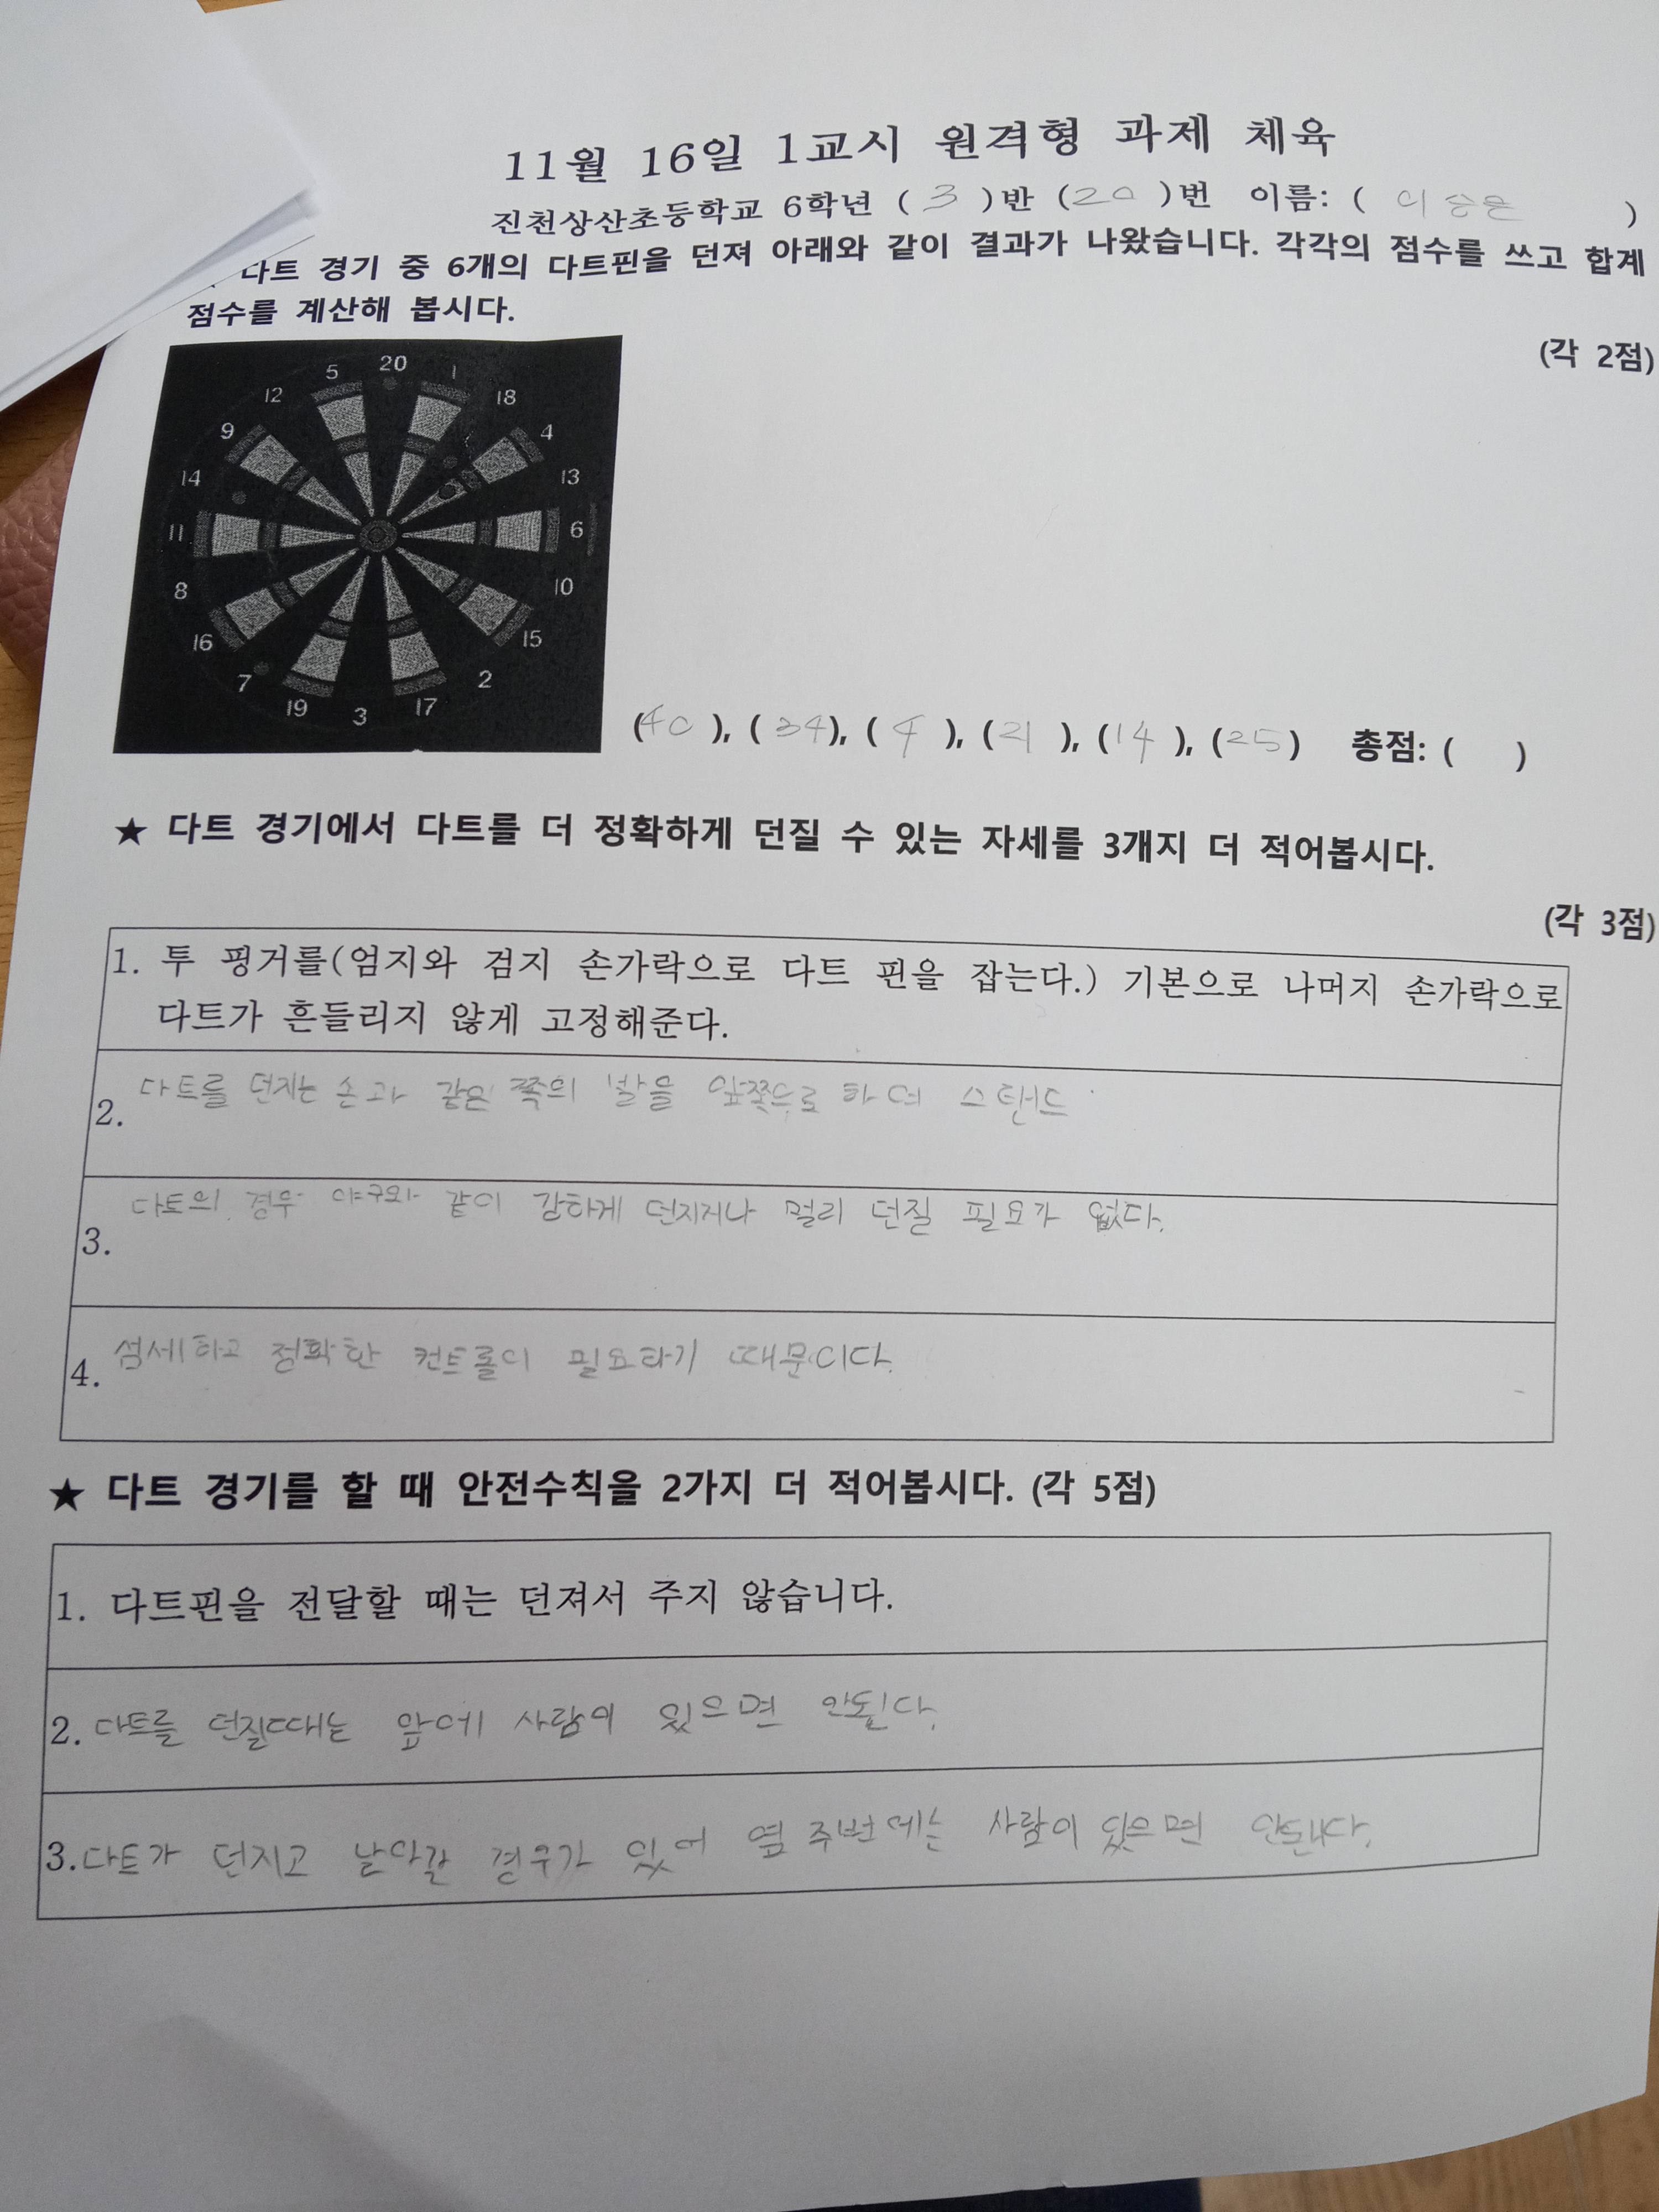 11월 16일 1교시 원격형 과제 체육
진천상산초등학교 6학년 ( 3 )반 (20 )번 이름: ( 이승은 )
다트 경기 중 6개의 다트핀을 던져 아래와 같이 결과가 나왔습니다. 각각의 점수를 쓰고 합계
점수를 계산해 봅시다.
(각 2점)
20
5 1
12 18
9 4
14 13
11 6
8 10
16 15
7 2
19 3 17
(40 ), ( 34), ( 4 ), (21 ), (14 ), (25) 총점: ( )
★ 다트 경기에서 다트를 더 정확하게 던질 수 있는 자세를 3개지 더 적어봅시다.
(각 3점)
1. 투 핑거를(엄지와 검지 손가락으로 다트 핀을 잡는다.) 기본으로 나머지 손가락으로
다트가 흔들리지 않게 고정해준다.
2. 다트를 던지는 손과 같은 쪽의 발을 앞쪽으로 하여 스탠드
3. 다트의 경우 야구와 같이 강하게 던지거나 멀리 던질 필요가 없다.
4. 섬세하고 정확한 컨트롤이 필요하기 때문이다.
★ 다트 경기를 할 때 안전수칙을 2가지 더 적어봅시다. (각 5점)
1. 다트핀을 전달할 때는 던져서 주지 않습니다.
2. 다트를 던질때는 앞에 사람이 있으면 안된다.
3. 다트가 던지고 날아갈 경우가 있어 옆 주변에는 사람이 있으면 안됀다.